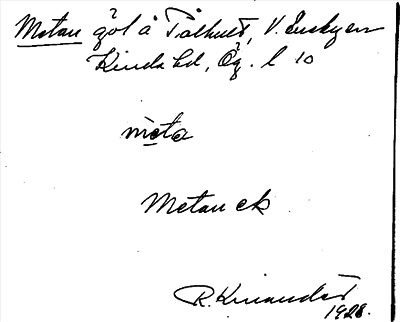 Metau göl å Tålhult, V. Eneby sn
Kinda hd, Ög. l 10
mèta
Metau ek
R. Kinander
1928.